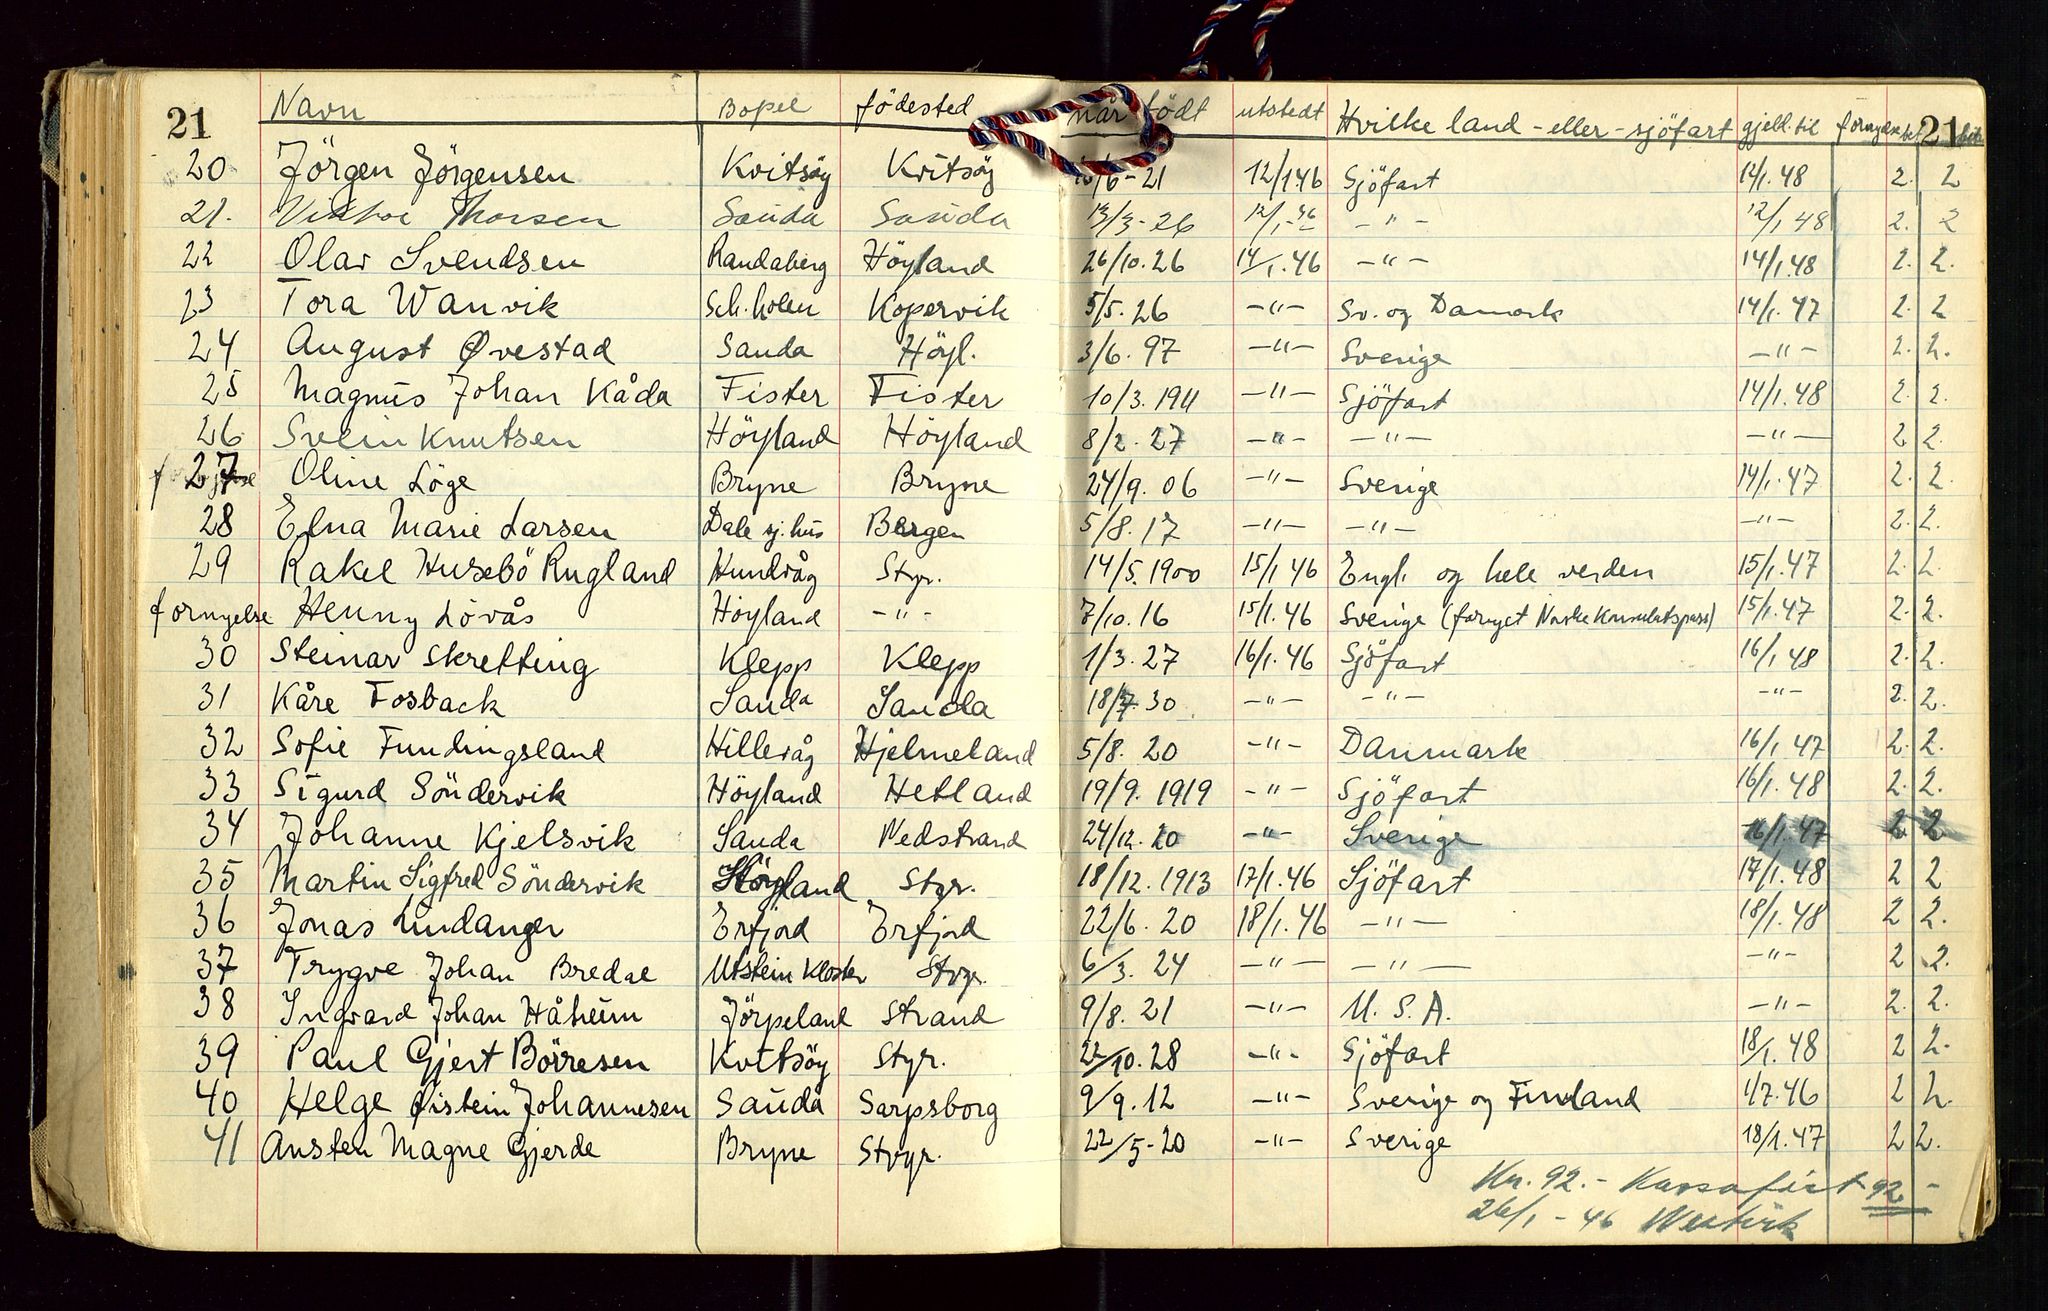 21 Navn Bopel födested når födt utstedt Hvilke land - eller - sjöfart gjeld. til 21
20 Jörgen Jörgensen Kvitsöy Kvitsöy /6-21 12/1.46 Sjöfart 12/1.48 2. 2
21. Viktor Thorsen Sauda Sauda 13/3-26 12/1-46 -"- 12/1 48 2. 2
22 Olav Svendsen Randaberg Höyland 26/10.26 14/1.46 -"- 14/1.48 2. 2.
23 Tora Wanvik Sch.holen Kopervik 5/5.26 -"- Sv. og Danmark 14/1.47 2. 2
24 August Øvestad Sauda Höyl. 3/6.97 -"- Sverige -"- 2. 2.
25 Magnus Johan Kåda Fister Fister 10/3.1911 -"- Sjöfart 14/1.48 2. 2.
26 Svein Knutsen Höyland Höyland 8/2.27 -"- -"- -"- 2 2.
27 Oline Löge Bryne Bryne 24/9.06 -"- Sverige 14/1.47 2. 2.
28 Elna Marie Larsen Dale sj.hus Bergen 5/8.17 -"- -"- -"- 2. 2.
29 Rakel Husebö Rugland Hundvåg Styr. 14/5.1900 15/1 46 Engl. og hele verden 15/1.47 2. 2.
fornyelse Henny Lövås Höyland -"- 7/10.16 15/1.46 Sverige (fornyet Norske Konsulatspass) 15/1.47 2. 2.
30 Steinar Skretting Klepp Klepp 1/3.27 16/1.46 Sjöfart 16/1.48 2. 2.
31 Kåre Fosback Sauda Sauda 18/7.30 -"- -"- -"- 2. 2.
32 Sofie Fundingsland Hillevåg Hjelmeland 5/8.20 -"- Danmark 16/1 47 2. 2.
33 Sigurd Söndervik Höyland Hetland 19/9.1919 -"- Sjöfart 16/1.48 2. 2.
34 Johanne Kjelsvik Sauda Nedstrand 24/12.20 -"- Sverige 16/1.47 2 2
35 Martin Sigfred Söndervik Höyland Styr. 18/12.1913 17/1.46 Sjöfart 17/1.48 2 2
36 Jonas Lindanger Erfjord Erfjord 22/6.20 18/1.46 -"- 18/1.48 2 2.
37 Trygve Johan Bredal Utstein Kloster Styr. 6/3.24 -"- -"- -"- 2 2.
38 Ingvard Johan Håheim Jörpeland Strand 9/8.21 -"- U.S.A. -"- 2. 2.
39 Paul Gjert Börresen Kvitsöy Styr. 22/10.28 -"- Sjöfart 18/1.48 2 2.
40 Helge Øistein Johannesen Sauda Sarpsborg 9/9.12 -"- Sverige og Finland 1/7.46 2 2.
41 Austen Magne Gjerde Bryne Styr. 22/5-20 -"- Sverige 18/1.47 2 2.
Kr. 92.- Kassaført 92.-
26/1-46